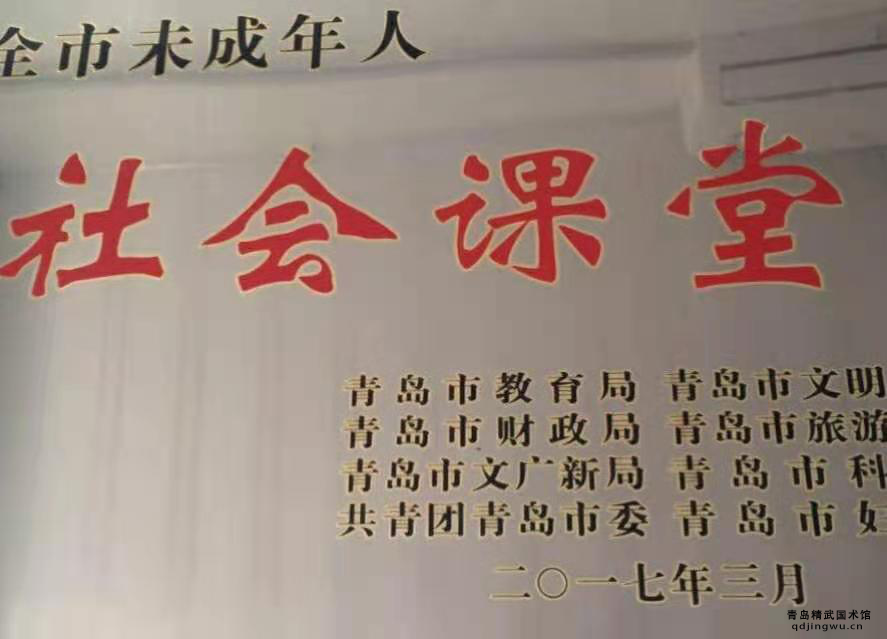 全市未成年人
社会课堂
青岛市教育局 青岛市文明
青岛市财政局 青岛市旅游
青岛市文广新局 青岛市科
共青团青岛市委 青岛市妇
二〇一七年三月
青岛精武国术馆
qdjingwu.cn